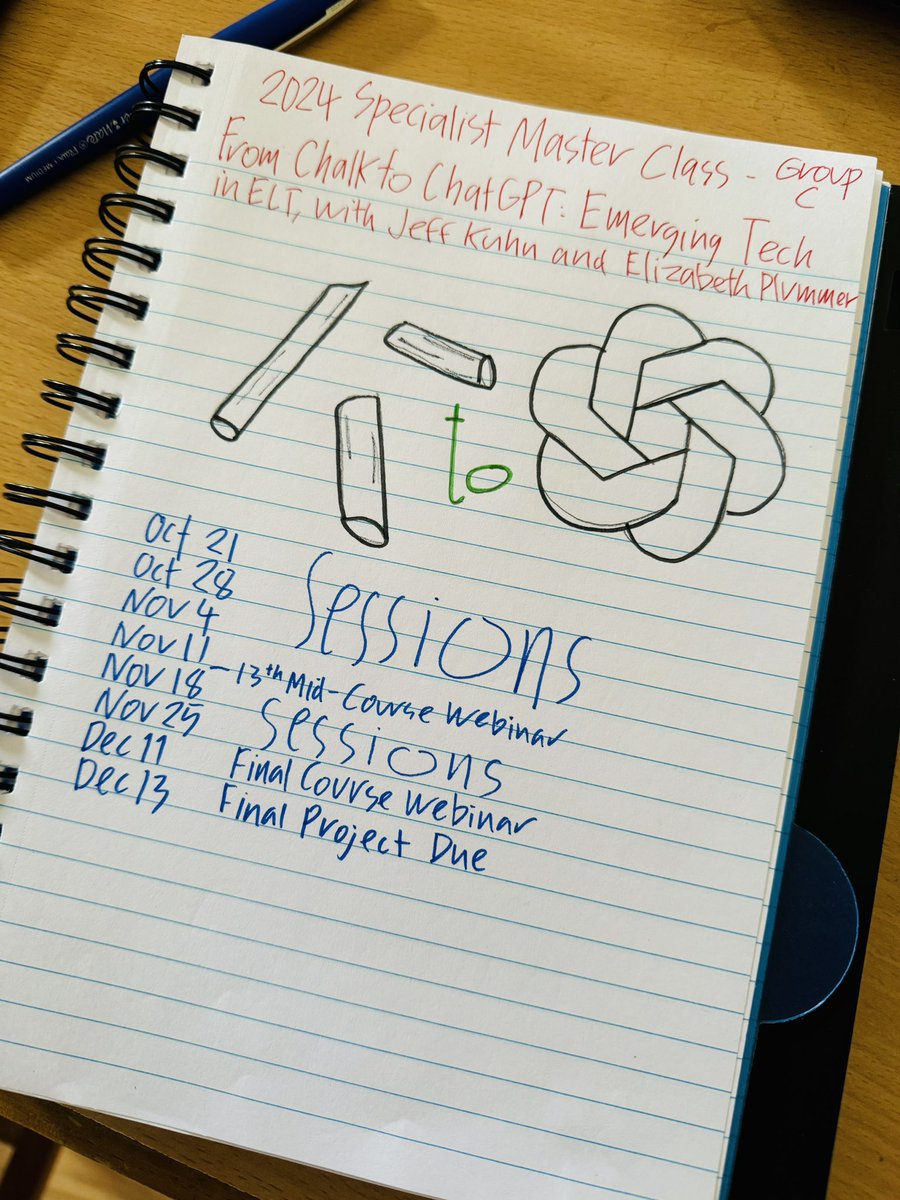 2024 Specialist Master Class - Group C
From Chalk to ChatGPT: Emerging Tech
in ELT, with Jeff Kuhn and Elizabeth Plummer
to
Oct 21
Oct 28
Nov 4
Sessions
Nov 11
Nov 18 - 13th Mid-Course Webinar
Nov 25 Sessions
Dec 11 Final Course Webinar
Dec 13 Final Project Due